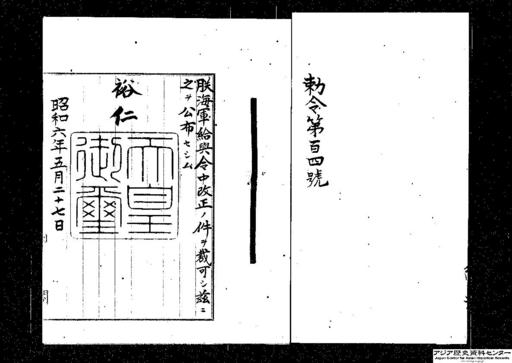 勅令第百四號
朕海軍給與令中改正ノ件ヲ裁可シ茲ニ
之ヲ公布セシム
裕仁
天皇御璽
昭和六年五月二十七日
アジア歴史資料センター
Japan Center for Asian Historical Records